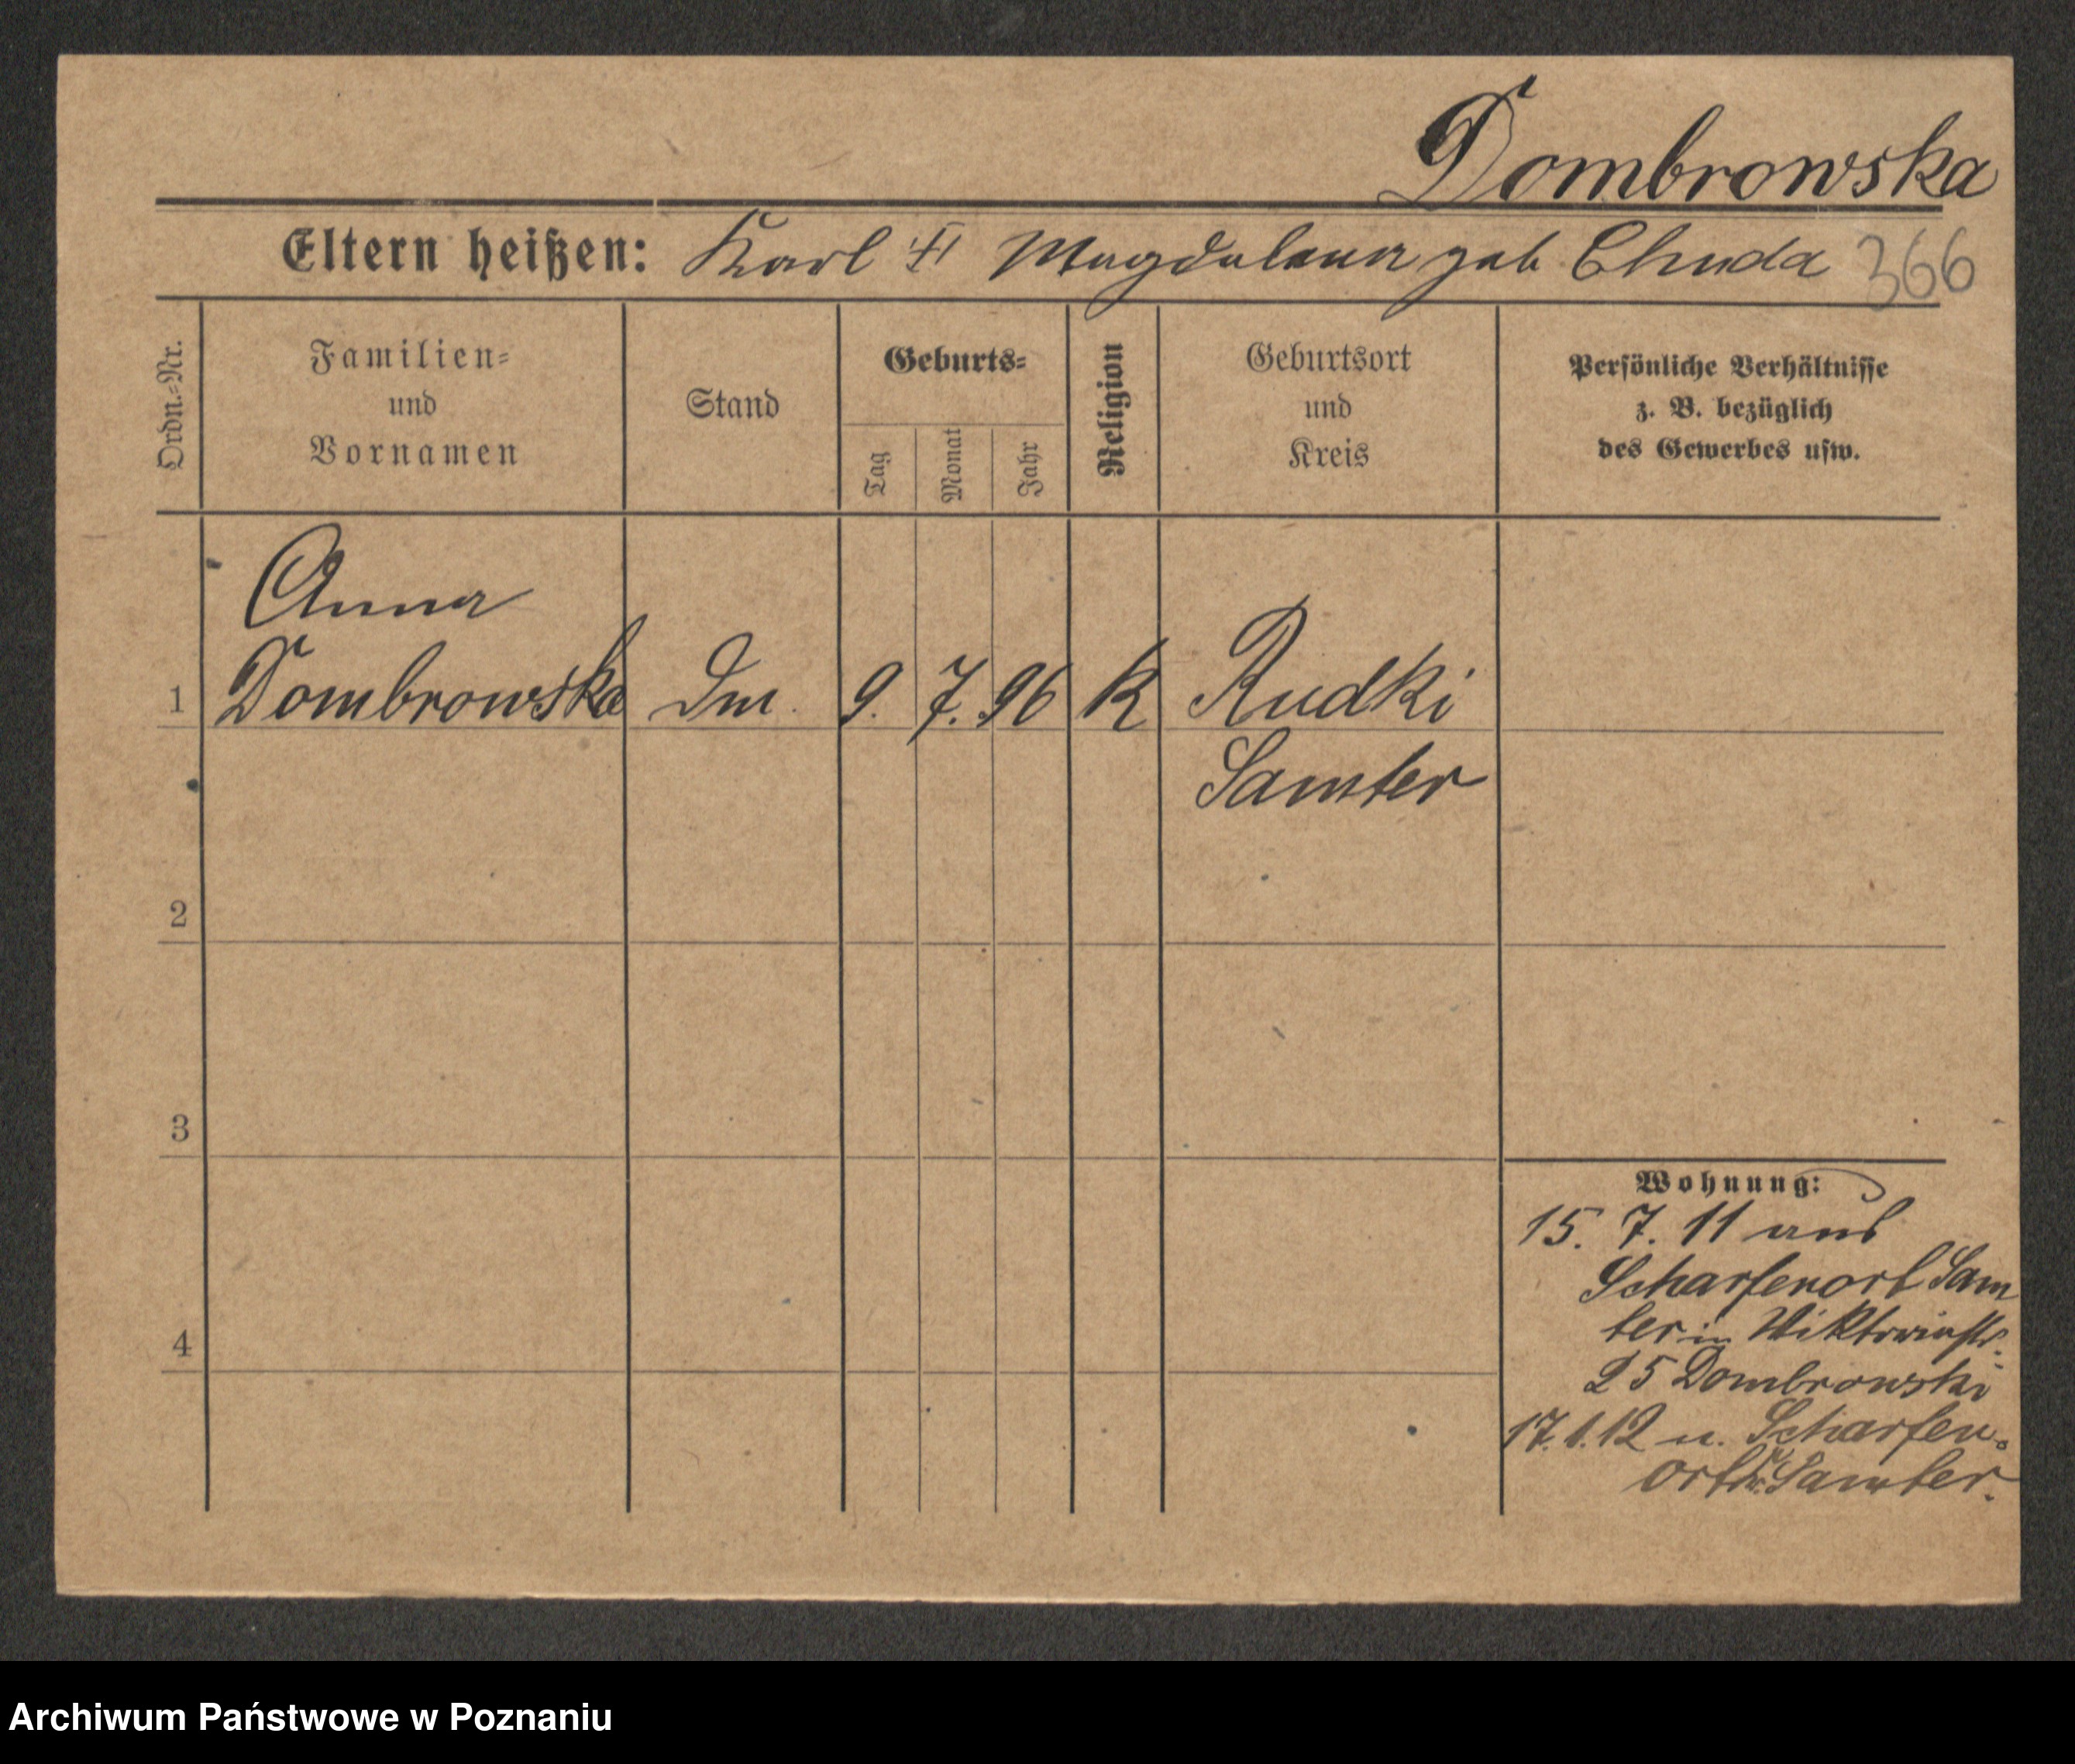 Dombrowska
Eltern heißen: Karl ⚔ Magdalena geb Chuda 366
Ordn.=Nr.
Familien=
und
Vornamen
Stand
Geburts=
Tag
Monat
Jahr
Religion
Geburtsort
und
Kreis
Persönliche Verhältnisse
z. B. bezüglich
des Gewerbes usw.
Anna
1 Dombrowska Dm. 9. 7. 96 K Rudki
Samter
2
3
Wohnung:
15. 7. 11 aus
Scharfenort Sam
ter in
4
25 Dombrowski
17.1.12 n. Scharfen=
ort Samter.
Archiwum Państwowe w Poznaniu